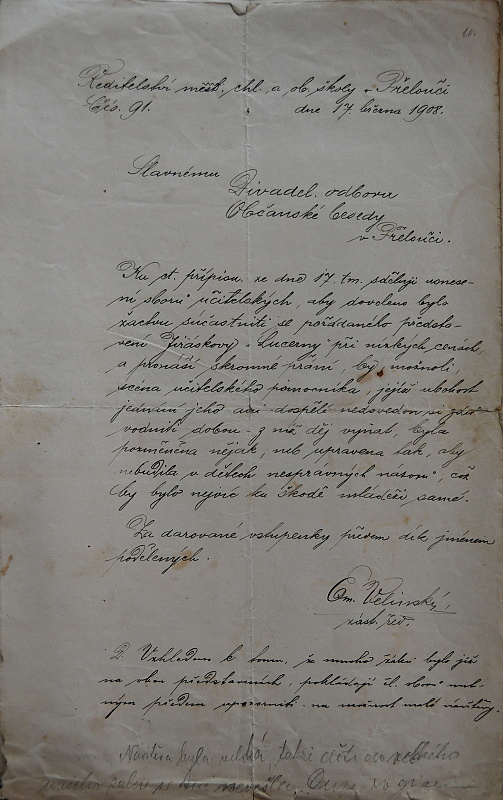 10.
Ředitelství měšť. chl. a ob. školy v Přelouči
Čís. 91. dne 17. března 1908.
Slavnému
Divadel. odboru
Občanské besedy
v Přelouči.
Ku ct. přípisu ze dne 17. t.m. sděluji usnese-
ní sborů učitelských, aby dovoleno bylo
žactvu súčastniti se pořádaného předsta-
vení Jiráskovy „Lucerny" při nízkých cenách,
a pronáší skromné přání, by, možno-li,
scéna učitelského pomocníka, jejíž ubohost
jednání jeho ani dospělí nedovedou si
vodniti dobou z níž děj vyňat, byla
pozměněna nějak, neb upravena tak, aby
nebudila v dětech nesprávných názorů, což
by bylo nejvíc ku škodě mládeži samé.
Za darované vstupenky předem dík jménem
podělených.
Om. Velinský,
zást. řed.
P. Vzhledem k tomu, že mnoho žáků bylo již
na obou představeních, pokládají čl. sborů nut-
ným předem upozorniti na možnost malé návštěvy.
Návštěva byla velká, takže děti do velkého